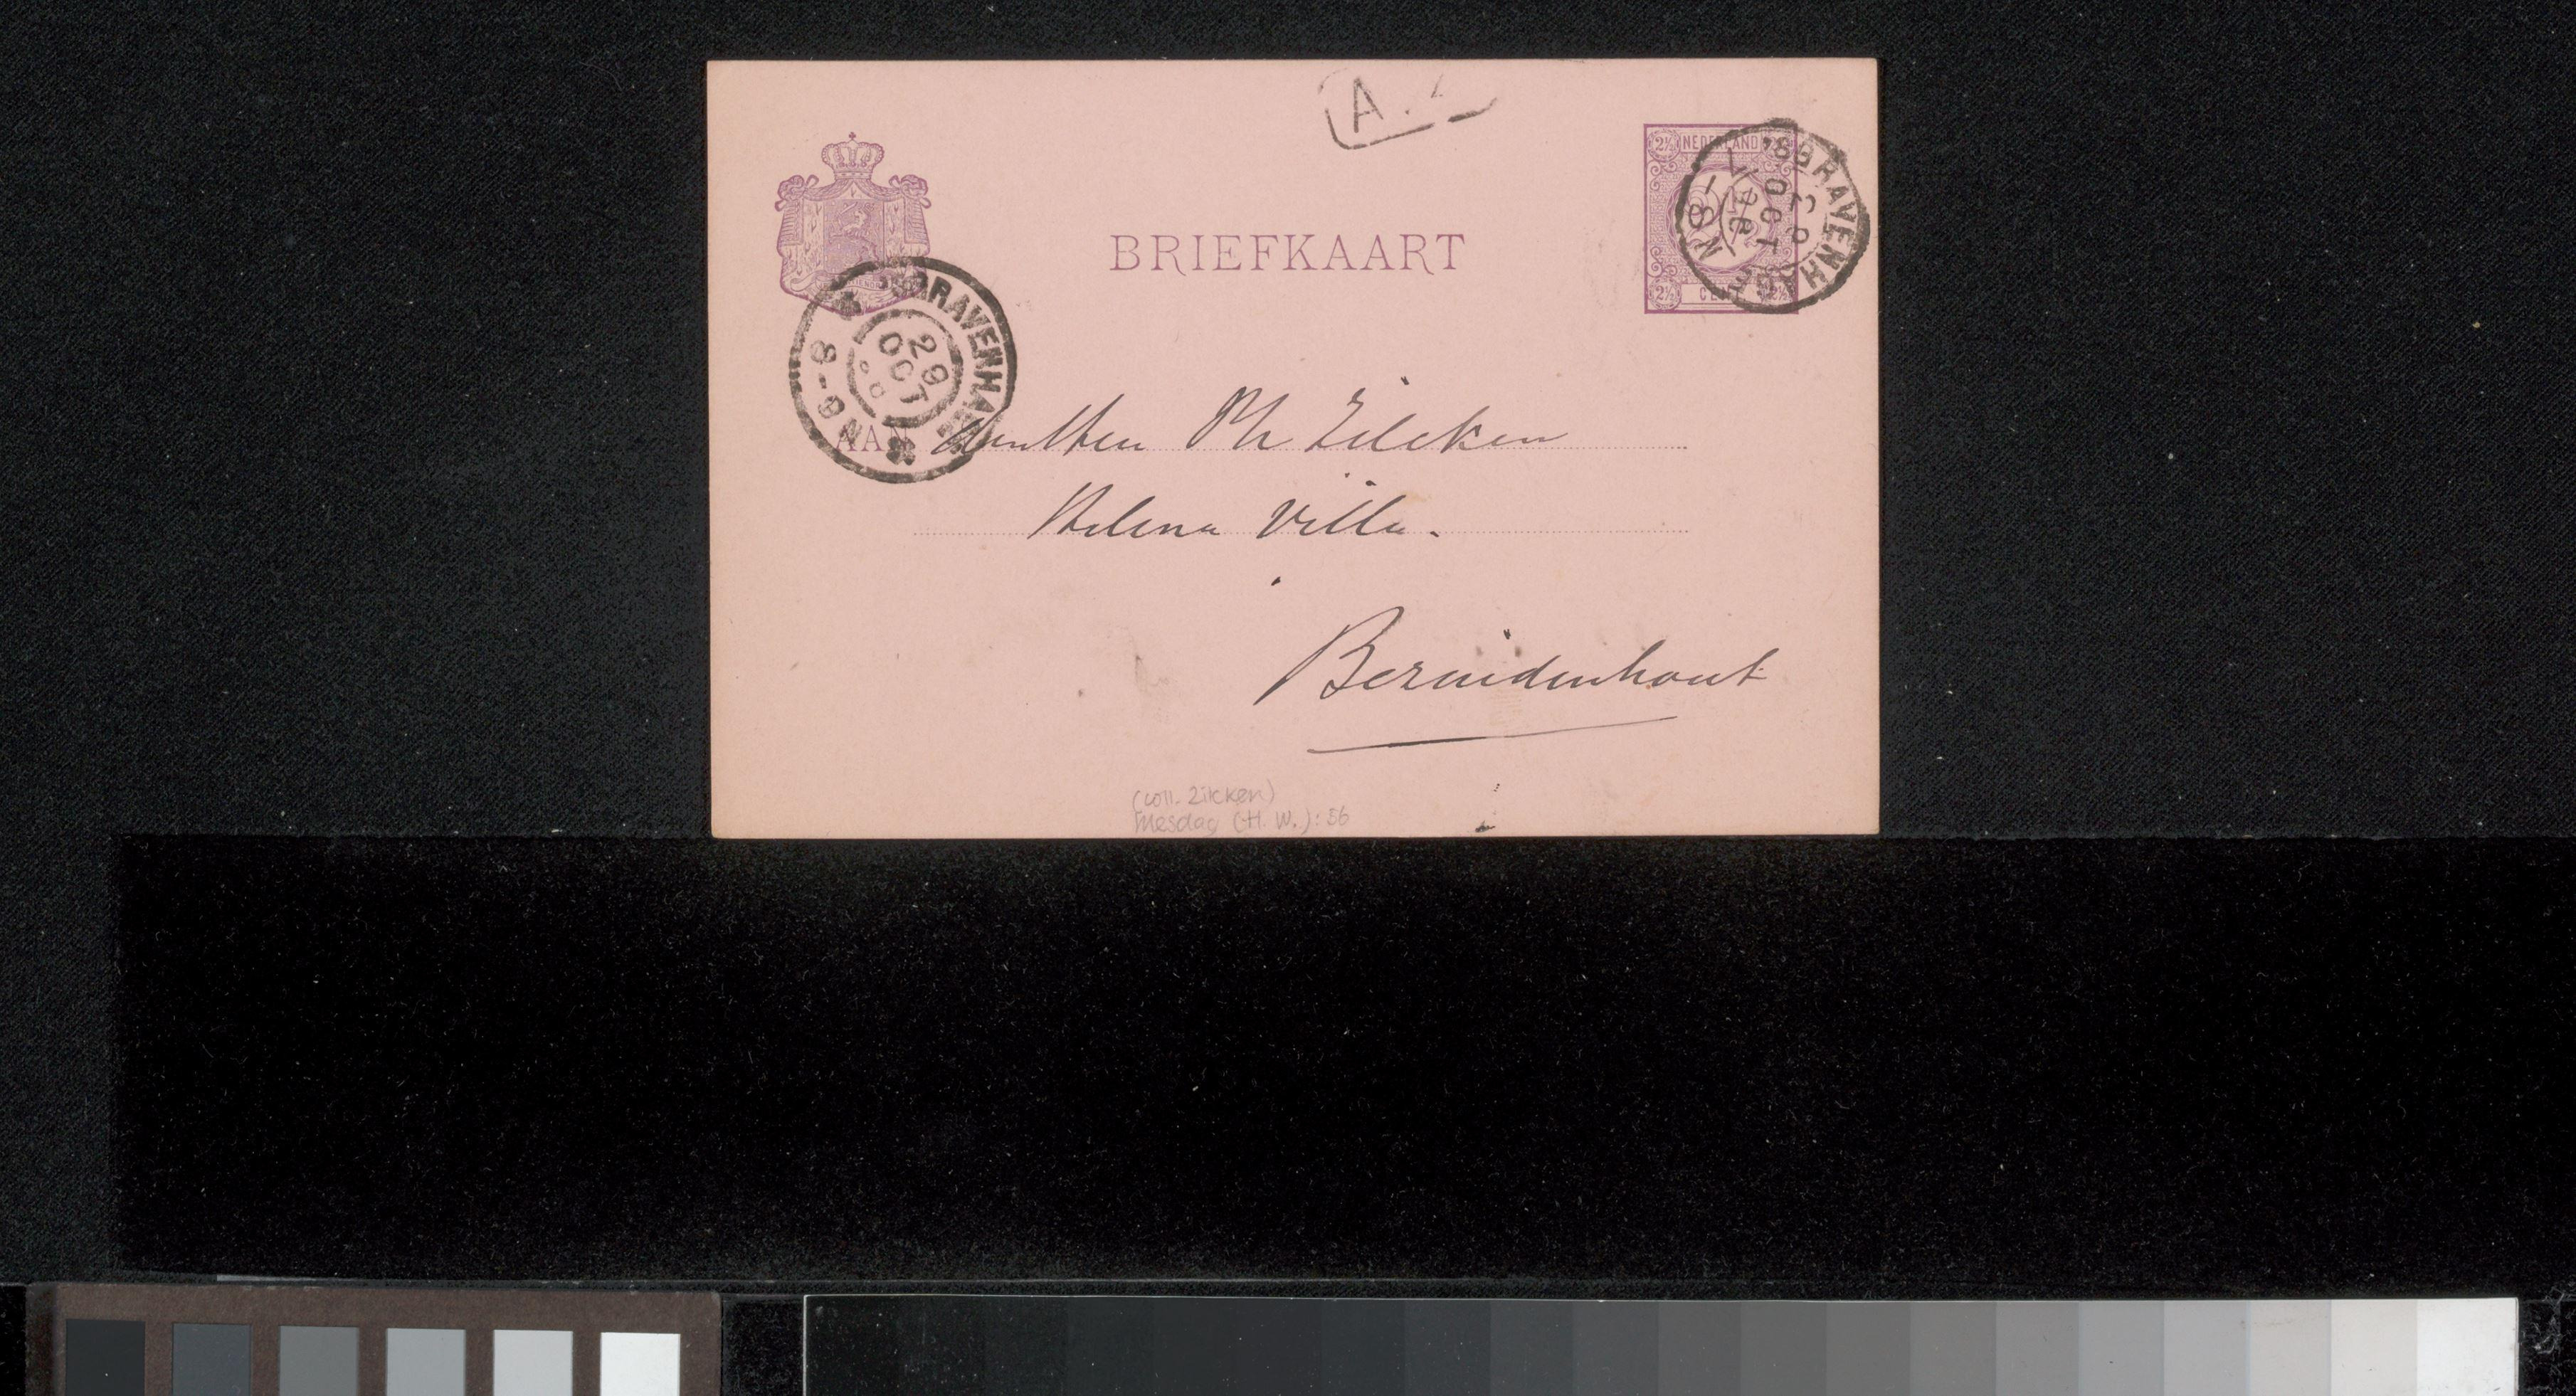 A.
BRIEFKAART
2½ NEDERLAND
CENT 2½
'S GRAVENHAGE
29 OCT
'S GRAVENHAGE
29 OCT
8-9N
AAN den Heer Ph Zilcken
Helena Villa.
Bezuidenhout
(coll. Zilcken)
Mesdag (H. W.): 56